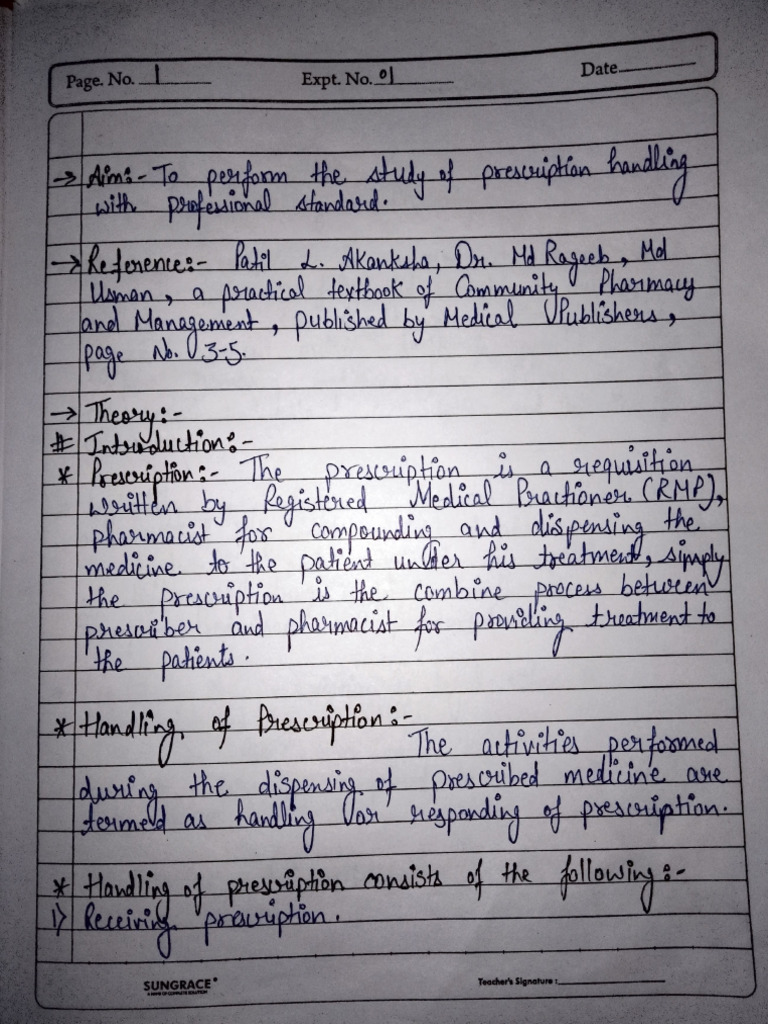 Page. No. 1 Expt. No. 01 Date
→ Aim:- To perform the study of prescription handling
with professional standard.
→ Reference:- Patil L. Akanksha, Dr. Md Rageeb, Md
Usman, a practical textbook of Community Pharmacy
and Management, published by Medical Publishers,
page No. 3-5.
→ Theory:-
# Introduction:-
* Prescription:- The prescription is a requisition
written by Registered Medical Practioner (RMP),
pharmacist for compounding and dispensing the
medicine to the patient under his treatment, simply
the prescription is the combine process between
prescriber and pharmacist for providing treatment to
the patients.
* Handling of Prescription:-
The activities performed
during the dispensing of prescribed medicine are
termed as handling or responding of prescription.
* Handling of prescription consists of the following:-
1) Receiving prescription.
SUNGRACE Teacher's Signature: